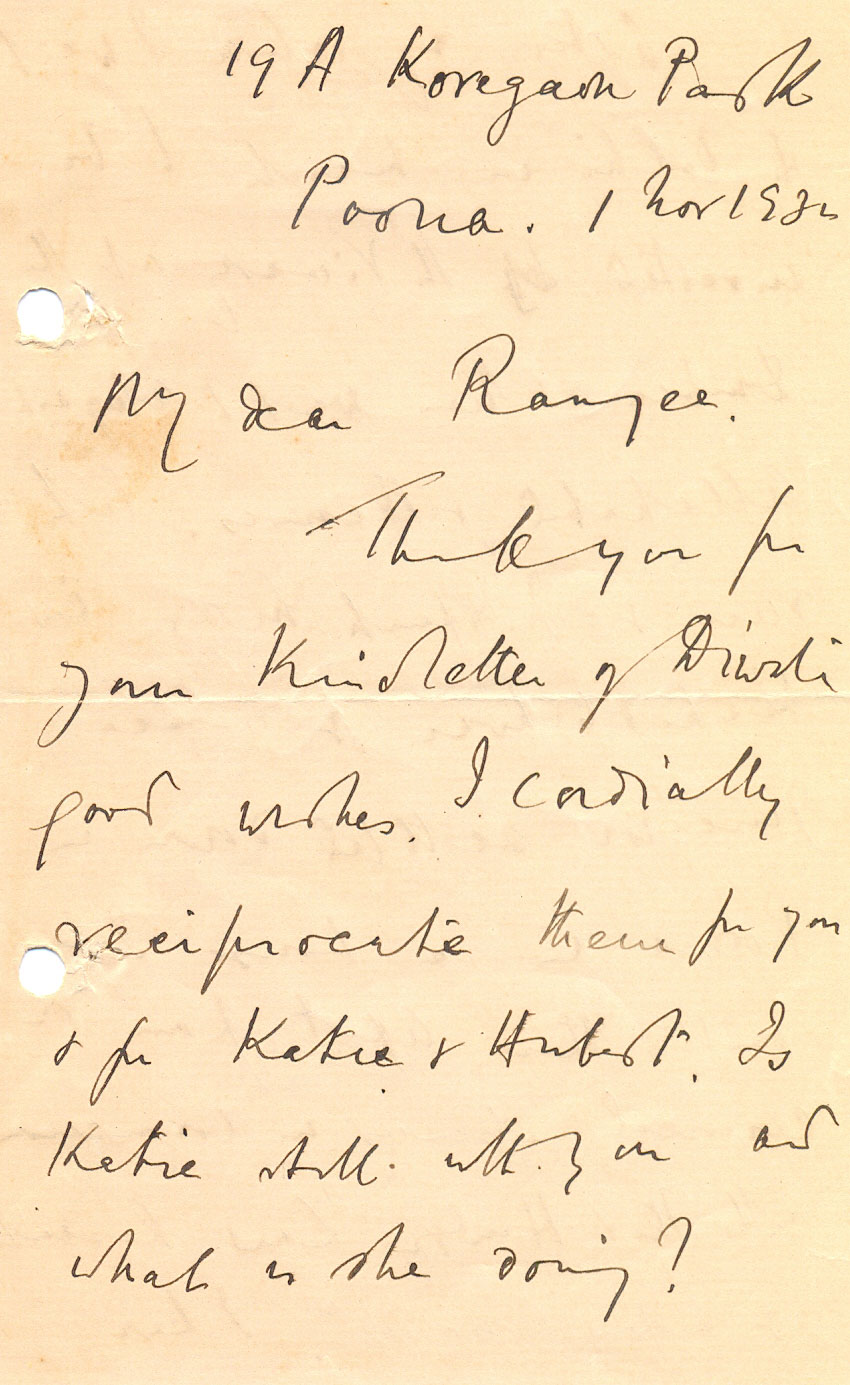 19 A Koregaon Park
Poona. 1 Nov
My dear Ramjee.
Thank you for
your kind letter of Diwali
good wishes. I cordially
reciprocate them for you
& for Katie & Hubert. Is
Katie still with you and
what is she doing?